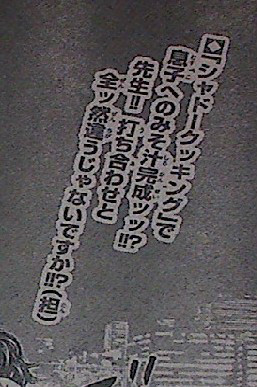 ◇「シャドークッキング」で
息子へのみそ汁完成ッッ!!?
先生!!打ち合わせと
全ッ然違うじゃないですか!!?(担)
!!